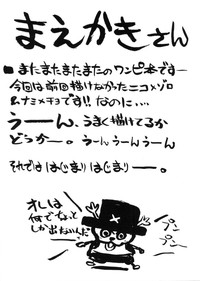 まえがきさん
■またまたまたまたのワンピ本ですー
今回は前回描けなかったニコ×ゾロ
&ナミ×チョです!! なのに…
うーーん、うまく描けてるか
どうかー。うーんうーんうーん
それでははじまりはじまりーー。
オレは
何でちょっと
しか出たいんだ
プンプンー